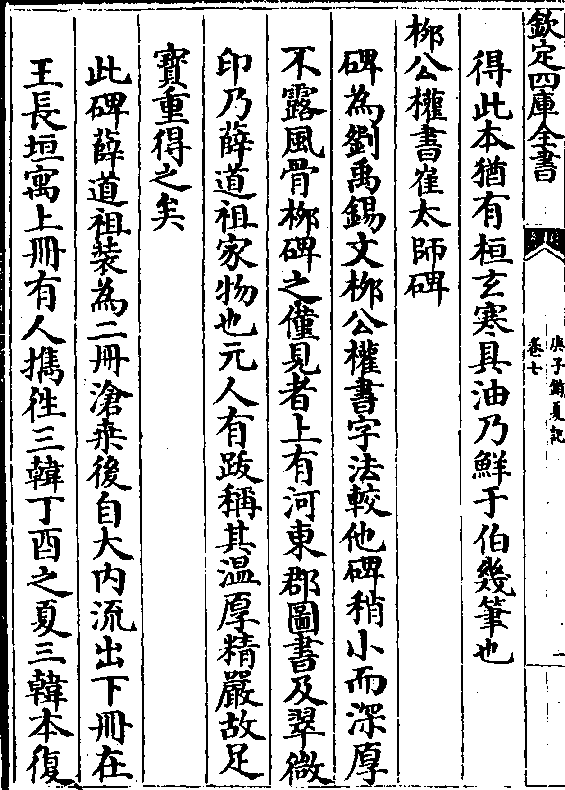 欽定四庫全書
庚子銷夏記
卷七
得此本猶有桓玄寒具油乃鮮于伯幾筆也
桞公權書崔太師碑
碑為劉禹錫文桞公權書字法較他碑稍小而深厚
不露風骨桞碑之僅見者上有河東郡圖書及翠微
印乃薛道祖家物也元人有跋稱其温厚精嚴故足
寳重得之矣
此碑薛道祖裝為二冊滄桒後自大内流出下冊在
王長垣寓上冊有人攜徃三韓丁酉之夏三韓本復